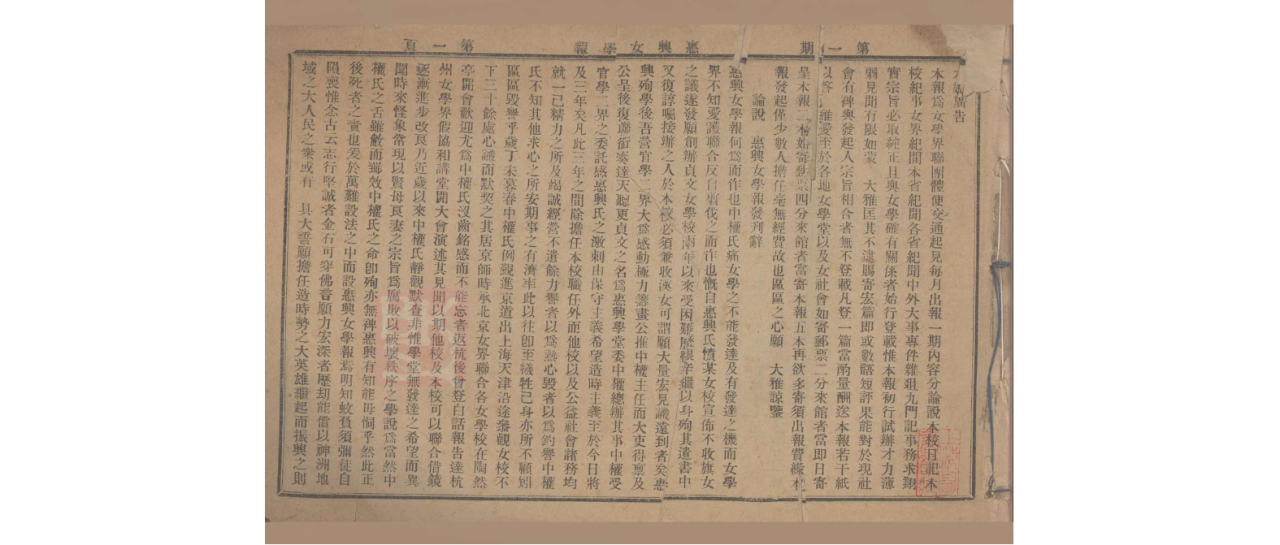 第一期
惠興女學報
第一頁
廣告
本報爲女學界聯團體便交通起見每月出報一期內容分論說本校日記本
校紀事女界紀聞本省紀聞各省紀聞中外大事專件雜爼九門記事務求翔
實宗旨必取純正且與女學確有關係者始行登載惟本報初行試辦才力薄
弱見聞有限如蒙　大雅匡其不逮賜寄宏篇即或數語短評果能對於現社
會有裨與發起人宗旨相合者無不登載凡登一篇當酌量酬送本報若干紙
以 至於各地女學堂以及女社會如寄郵票二分來館者當即日寄
呈本報 寄 四分來館者當寄本報五本再欲多寄須出報費緣本
報發起僅少數人擔任毫無經費故也區區之心願　大雅諒鑒
論說　惠興女學報發刊辭
惠興女學報何爲而作也中權氏痛女學之不能發達及有發達之機而女學
界不知愛護聯合反自 伐之而作也慨自惠興氏憤某女校宣佈不收旗女
之議遂發願創辦貞文女學校兩年以來受困難歷艱辛繼以身殉其遺書中
又復諄囑接辦之人於本校必須兼收漢女可謂願大量宏見識遠到者矣惠
興殉學後吾營官學二界大爲感動極力籌畫公推中權主任而大吏得稟及
公呈後復聯銜奏達天聽更貞文之名爲惠興學堂委中權總辦其事中權受
官學二界之委託感惠興氏之激刺由保守主義希望造時主義至於今日將
及三年矣凡此三年之間除擔任本校職任外而他校以及公益社會諸務均
就一己精力之所及竭誠經營不遺餘力譽者以爲熱心毀者以爲釣譽中權
氏不知其他求心之所安期事之有濟率此以往卽至犧牲己身亦所不顧矧
區區毀譽乎歲丁未暮春中權氏例覲進京道出上海天津沿途參觀女學校不
下三十餘處心議而默契之其居京師時承北京女界聯合各女學校在陶然
亭開會歡迎尤爲中權氏沒齒銘感而不能忘者返杭後會登白話報告達杭
州女學界假協和講堂開大會演述其見聞以期他校及本校可以聯合借鏡
逐漸進步改良乃近歲以來中權氏靜觀默查非惟學堂無發達之希望而異
聞時來怪象常現以賢母良妻之宗旨爲腐敗以破壞秩序之學說爲當然中
權氏之舌雖敝而鄉效中權氏之命卽殉亦無裨惠興有知能毋恫乎然此正
後死者之責也爰於萬難設法之中而設惠興女學報焉明知蚊負須彌徒自
隕喪惟念古云志行堅誠者金石可穿佛言願力宏深者歷劫能償以神洲地
域之大人民之衆或有　具大誓願擔任造時勢之大英雄繼起而振興之則